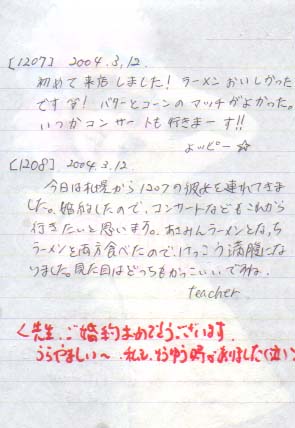 [1207] 2004.3.12.
初めて来店しました！ラーメンおいしかった
です！バターとコーンのマッチがよかった。
いつかコンサートも行きまーす!!
よッピー☆
[1208] 2004.3.12.
今日は札幌から1207の彼女を連れてきま
した。婚約したので、コンサートなどもこれから
行きたいと思いまする。あさみんラーメンとなっち
ラーメンを両方食べたので、けっこう満腹にな
りました。見た目はどっちもかっこいいですね。
teacher
く先生、ご婚約おめでとうございます。
うらやましい〜 私も、そうゆう時がありました(泣い)